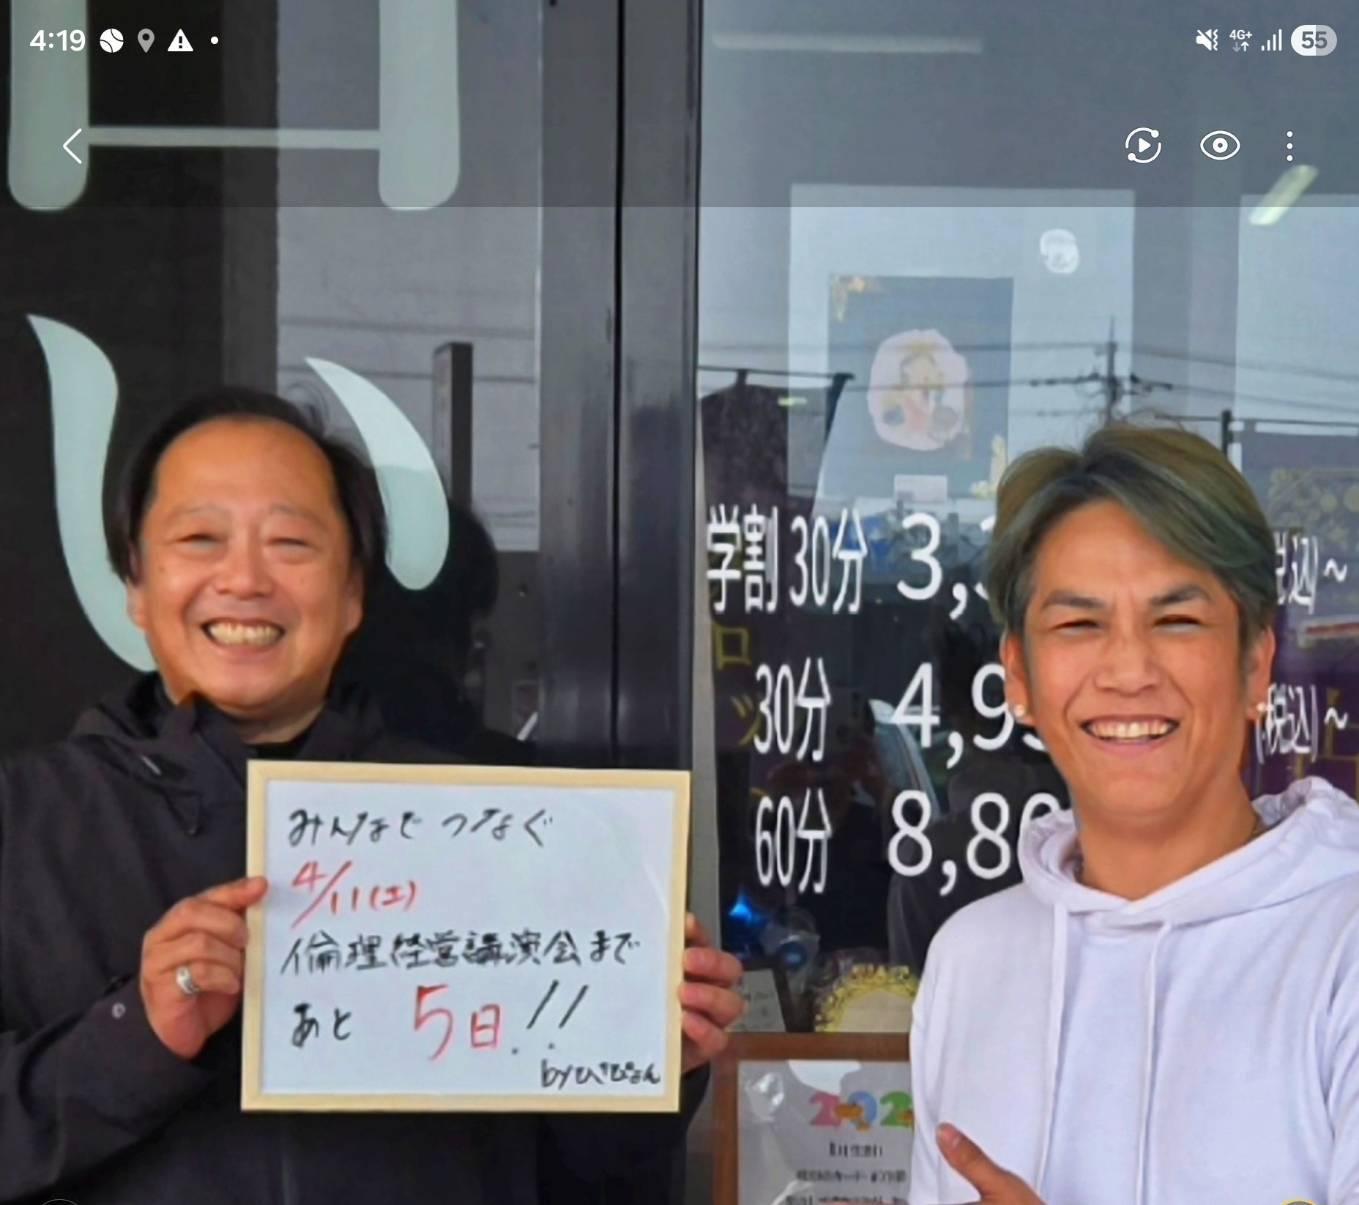 4:19
4G+
55
い
学割 30分 3,
税込)~
ロ
ッ
30分 4,9
(税込)~
60分 8,80
みんなで つなぐ
4/11(土)
倫理経営講演会まで
あと 5日!!
byひさぴょん
202